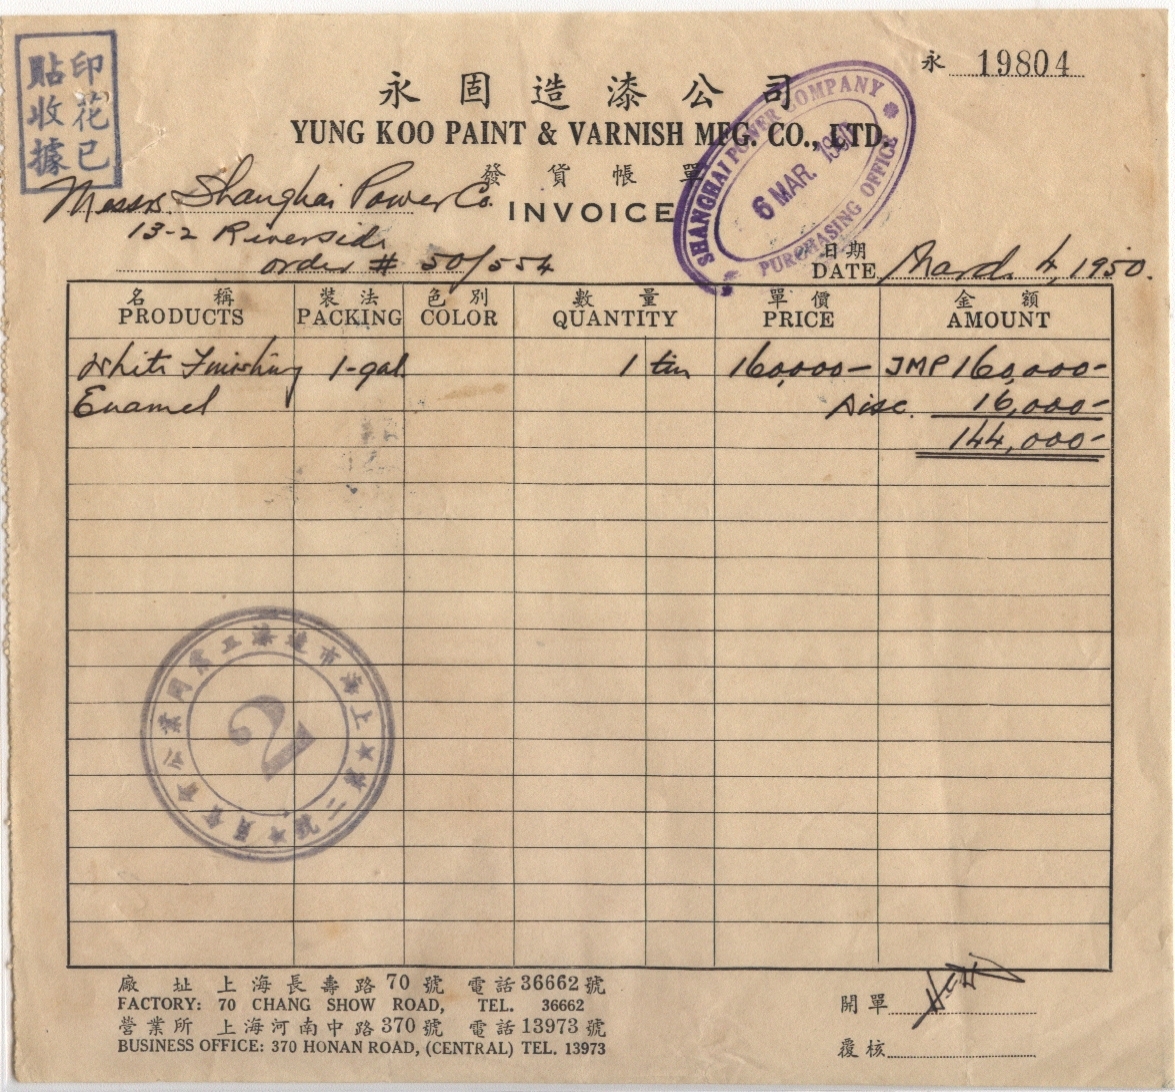 印花已
貼收據
永 19804
永固造漆公司
YUNG KOO PAINT & VARNISH MFG. CO., LTD.
發貨帳單
INVOICE
SHANGHAI POWER COMPANY
6 MAR. 1950
PURCHASING OFFICE
Messrs. Shanghai Power Co.
13-2 Riverside
order # 50/554
日期
DATE March 4, 1950.
名稱 裝法 色別 數量 單價 金額
PRODUCTS PACKING COLOR QUANTITY PRICE AMOUNT
White Finishing 1-gal. 1 tin 160,000- JMP 160,000-
Enamel Disc. 16,000-
144,000-
上海市造漆工業同業公會會員
第二號
2
廠址 上海長壽路70號 電話36662號
FACTORY: 70 CHANG SHOW ROAD, TEL. 36662
營業所 上海河南中路370號 電話13973號
BUSINESS OFFICE: 370 HONAN ROAD, (CENTRAL) TEL. 13973
開單
覆核